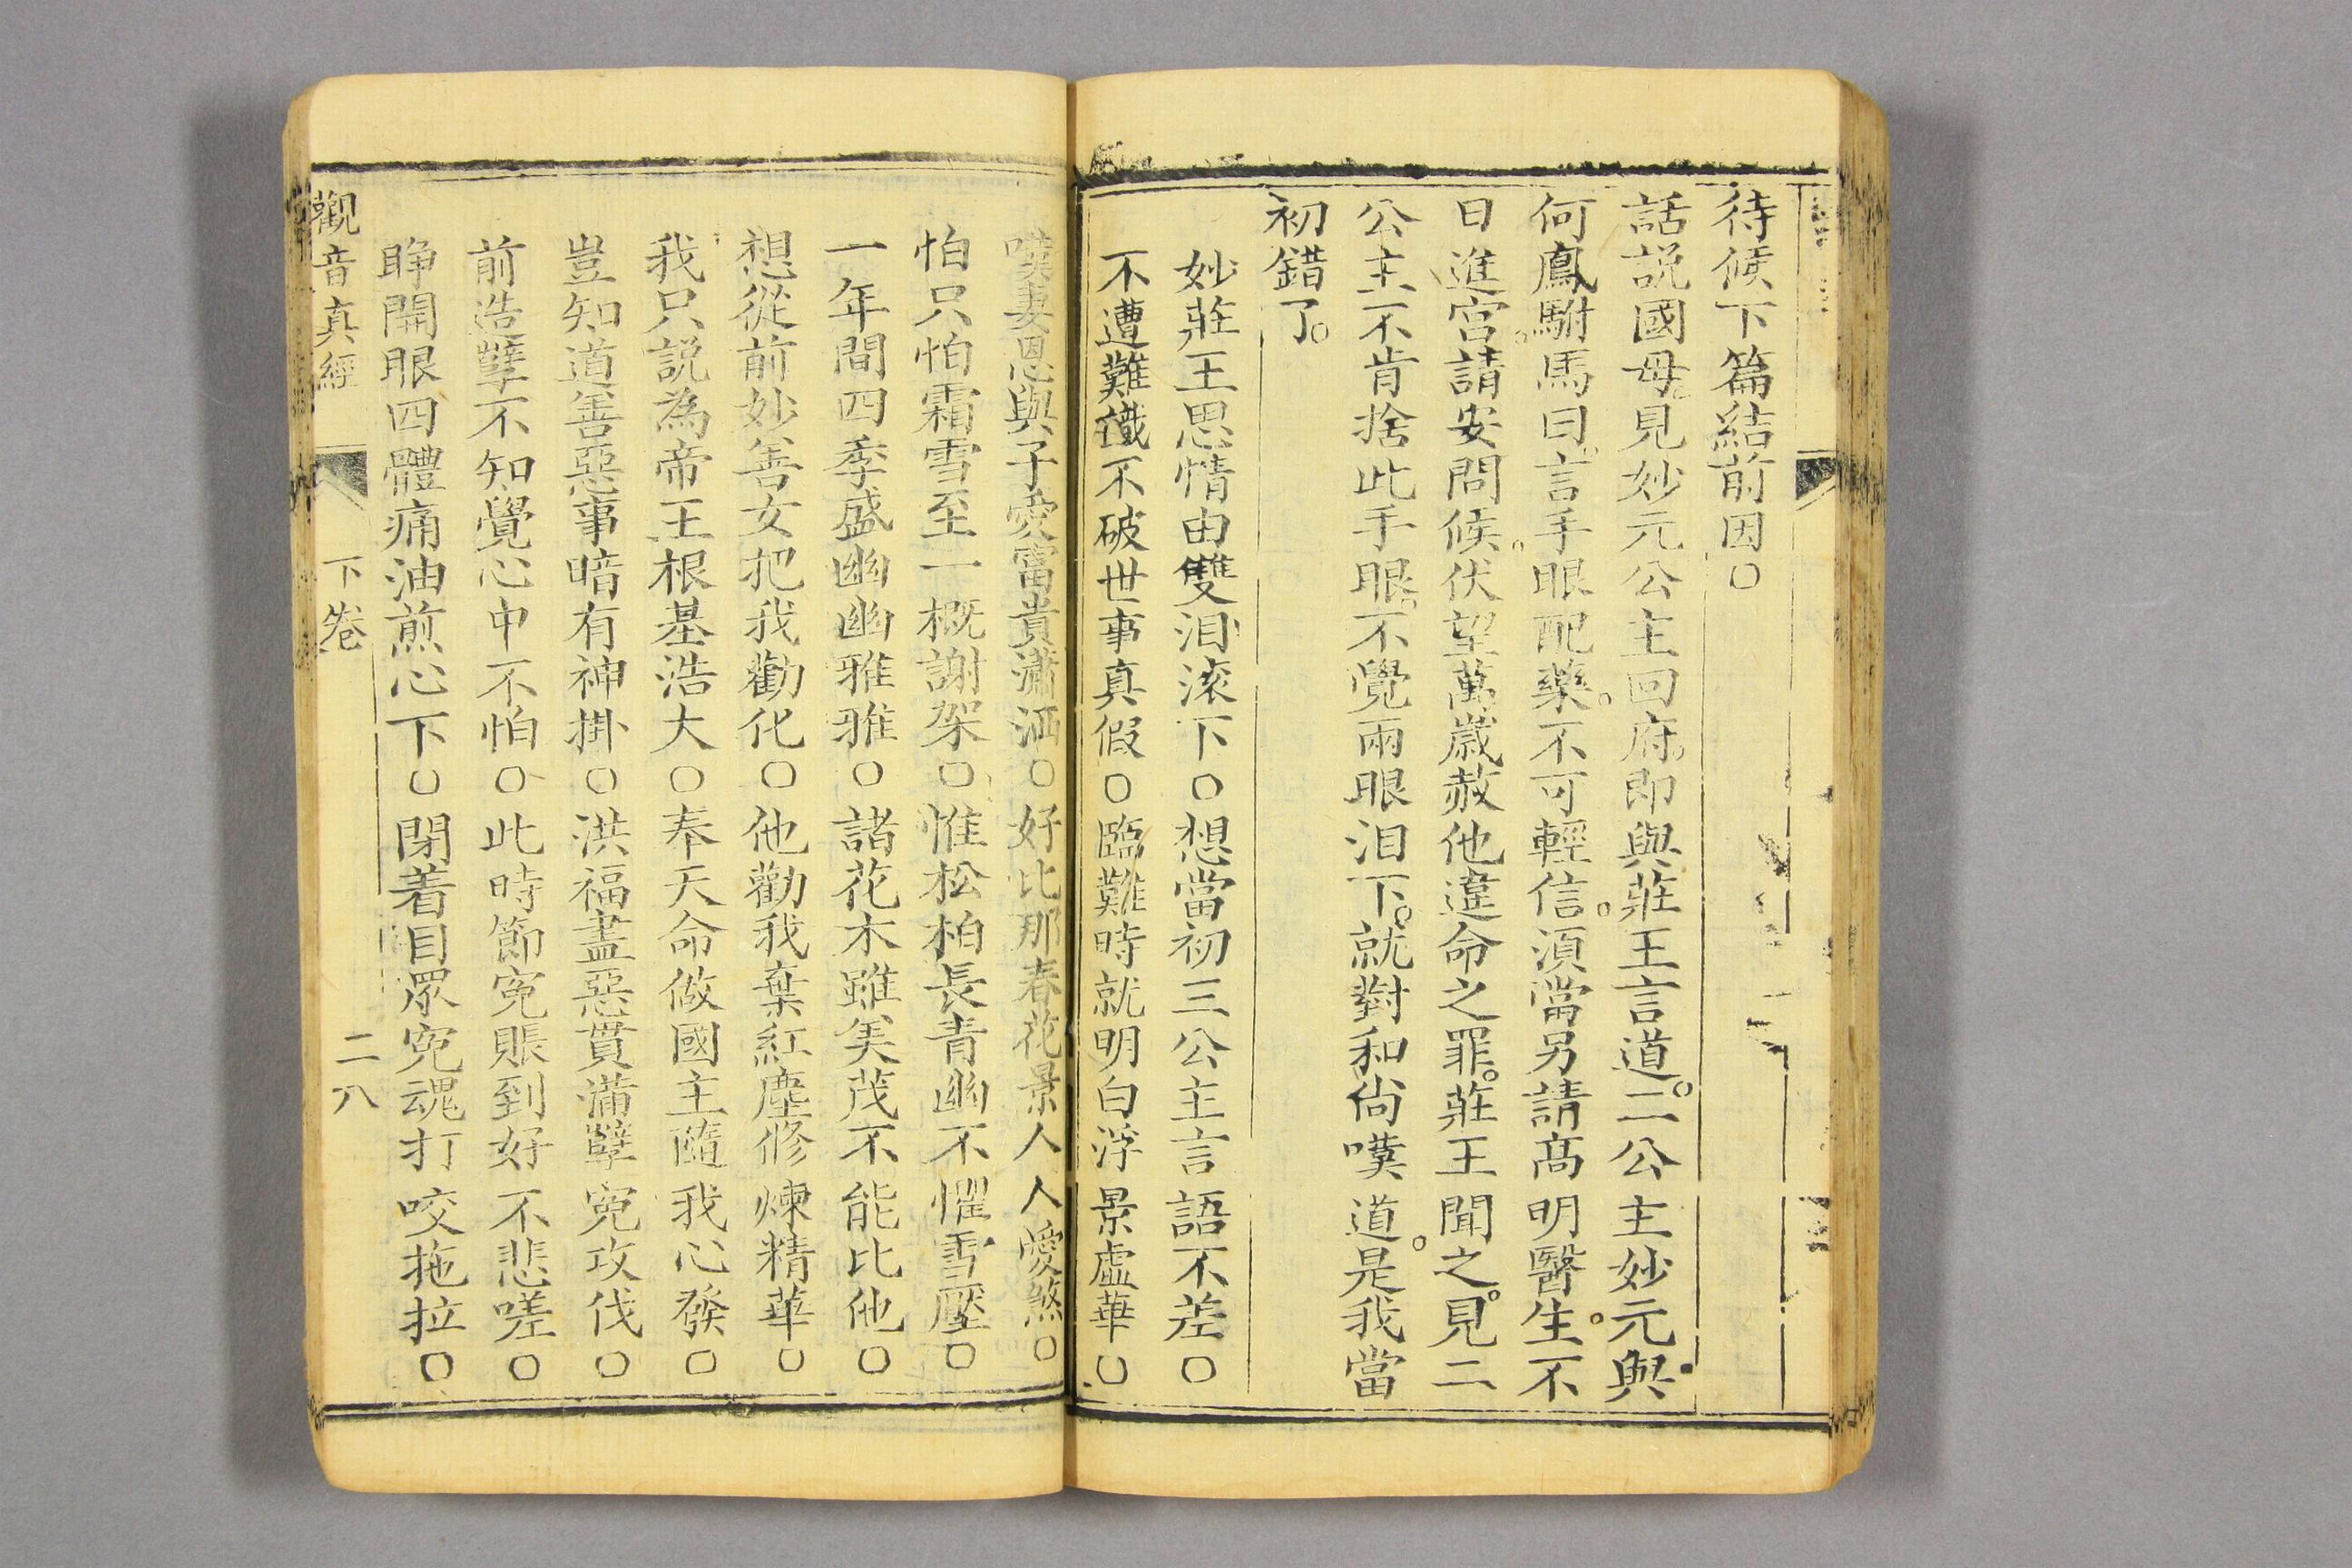 待候下篇結前因○
話説國母。見妙元公主回府。即與莊王言道。二公主妙元與
何鳳駙馬曰。言手眼配藥。不可輕信。須當另請高明醫生。不
日進宮。請安問候。伏望萬歲赦他違命之罪。莊王聞之。見二
公主不肯捨此手眼。不覺兩眼泪下。就對和尚嘆道。是我當
初錯了。
妙莊王思情由雙泪滚下○想當初三公主言語不差○
不遭難識不破世事真假○臨難時就明白浮景虛華○
嘆妻恩與子愛富貴瀟洒○好比那春花景人人愛煞○
怕只怕霜雪至一概謝架○惟松柏長青幽不懼雪壓○
一年間四季盛幽幽雅雅○諸花木雖美茂不能比他○
想從前妙善女把我勸化○他勸我棄紅塵修煉精華○
我只説為帝王根基浩大○奉天命做國主隨我心發○
豈知道善惡事暗有神掛○洪福盡惡貫滿孽寃攻伐○
前造孽不知覺心中不怕○此時節寃賬到好不悲嗟○
睁開眼四體痛油煎心下○閉着目眾寃魂打咬拖拉○
觀音真經 下卷 二八